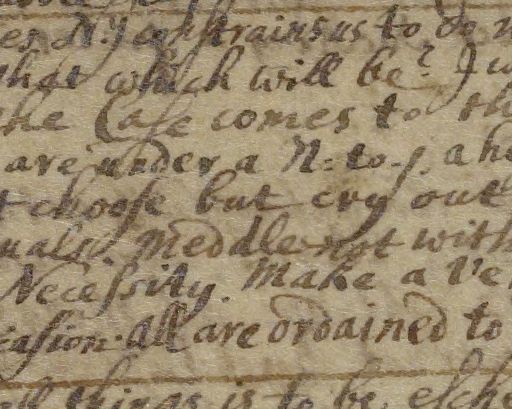 constrains us to do
that which will be? I
the Case comes to
are under a N: to. a
choose but cry out
meddle not with
Necessity. Make a
casion. All are ordained to
things is to be.